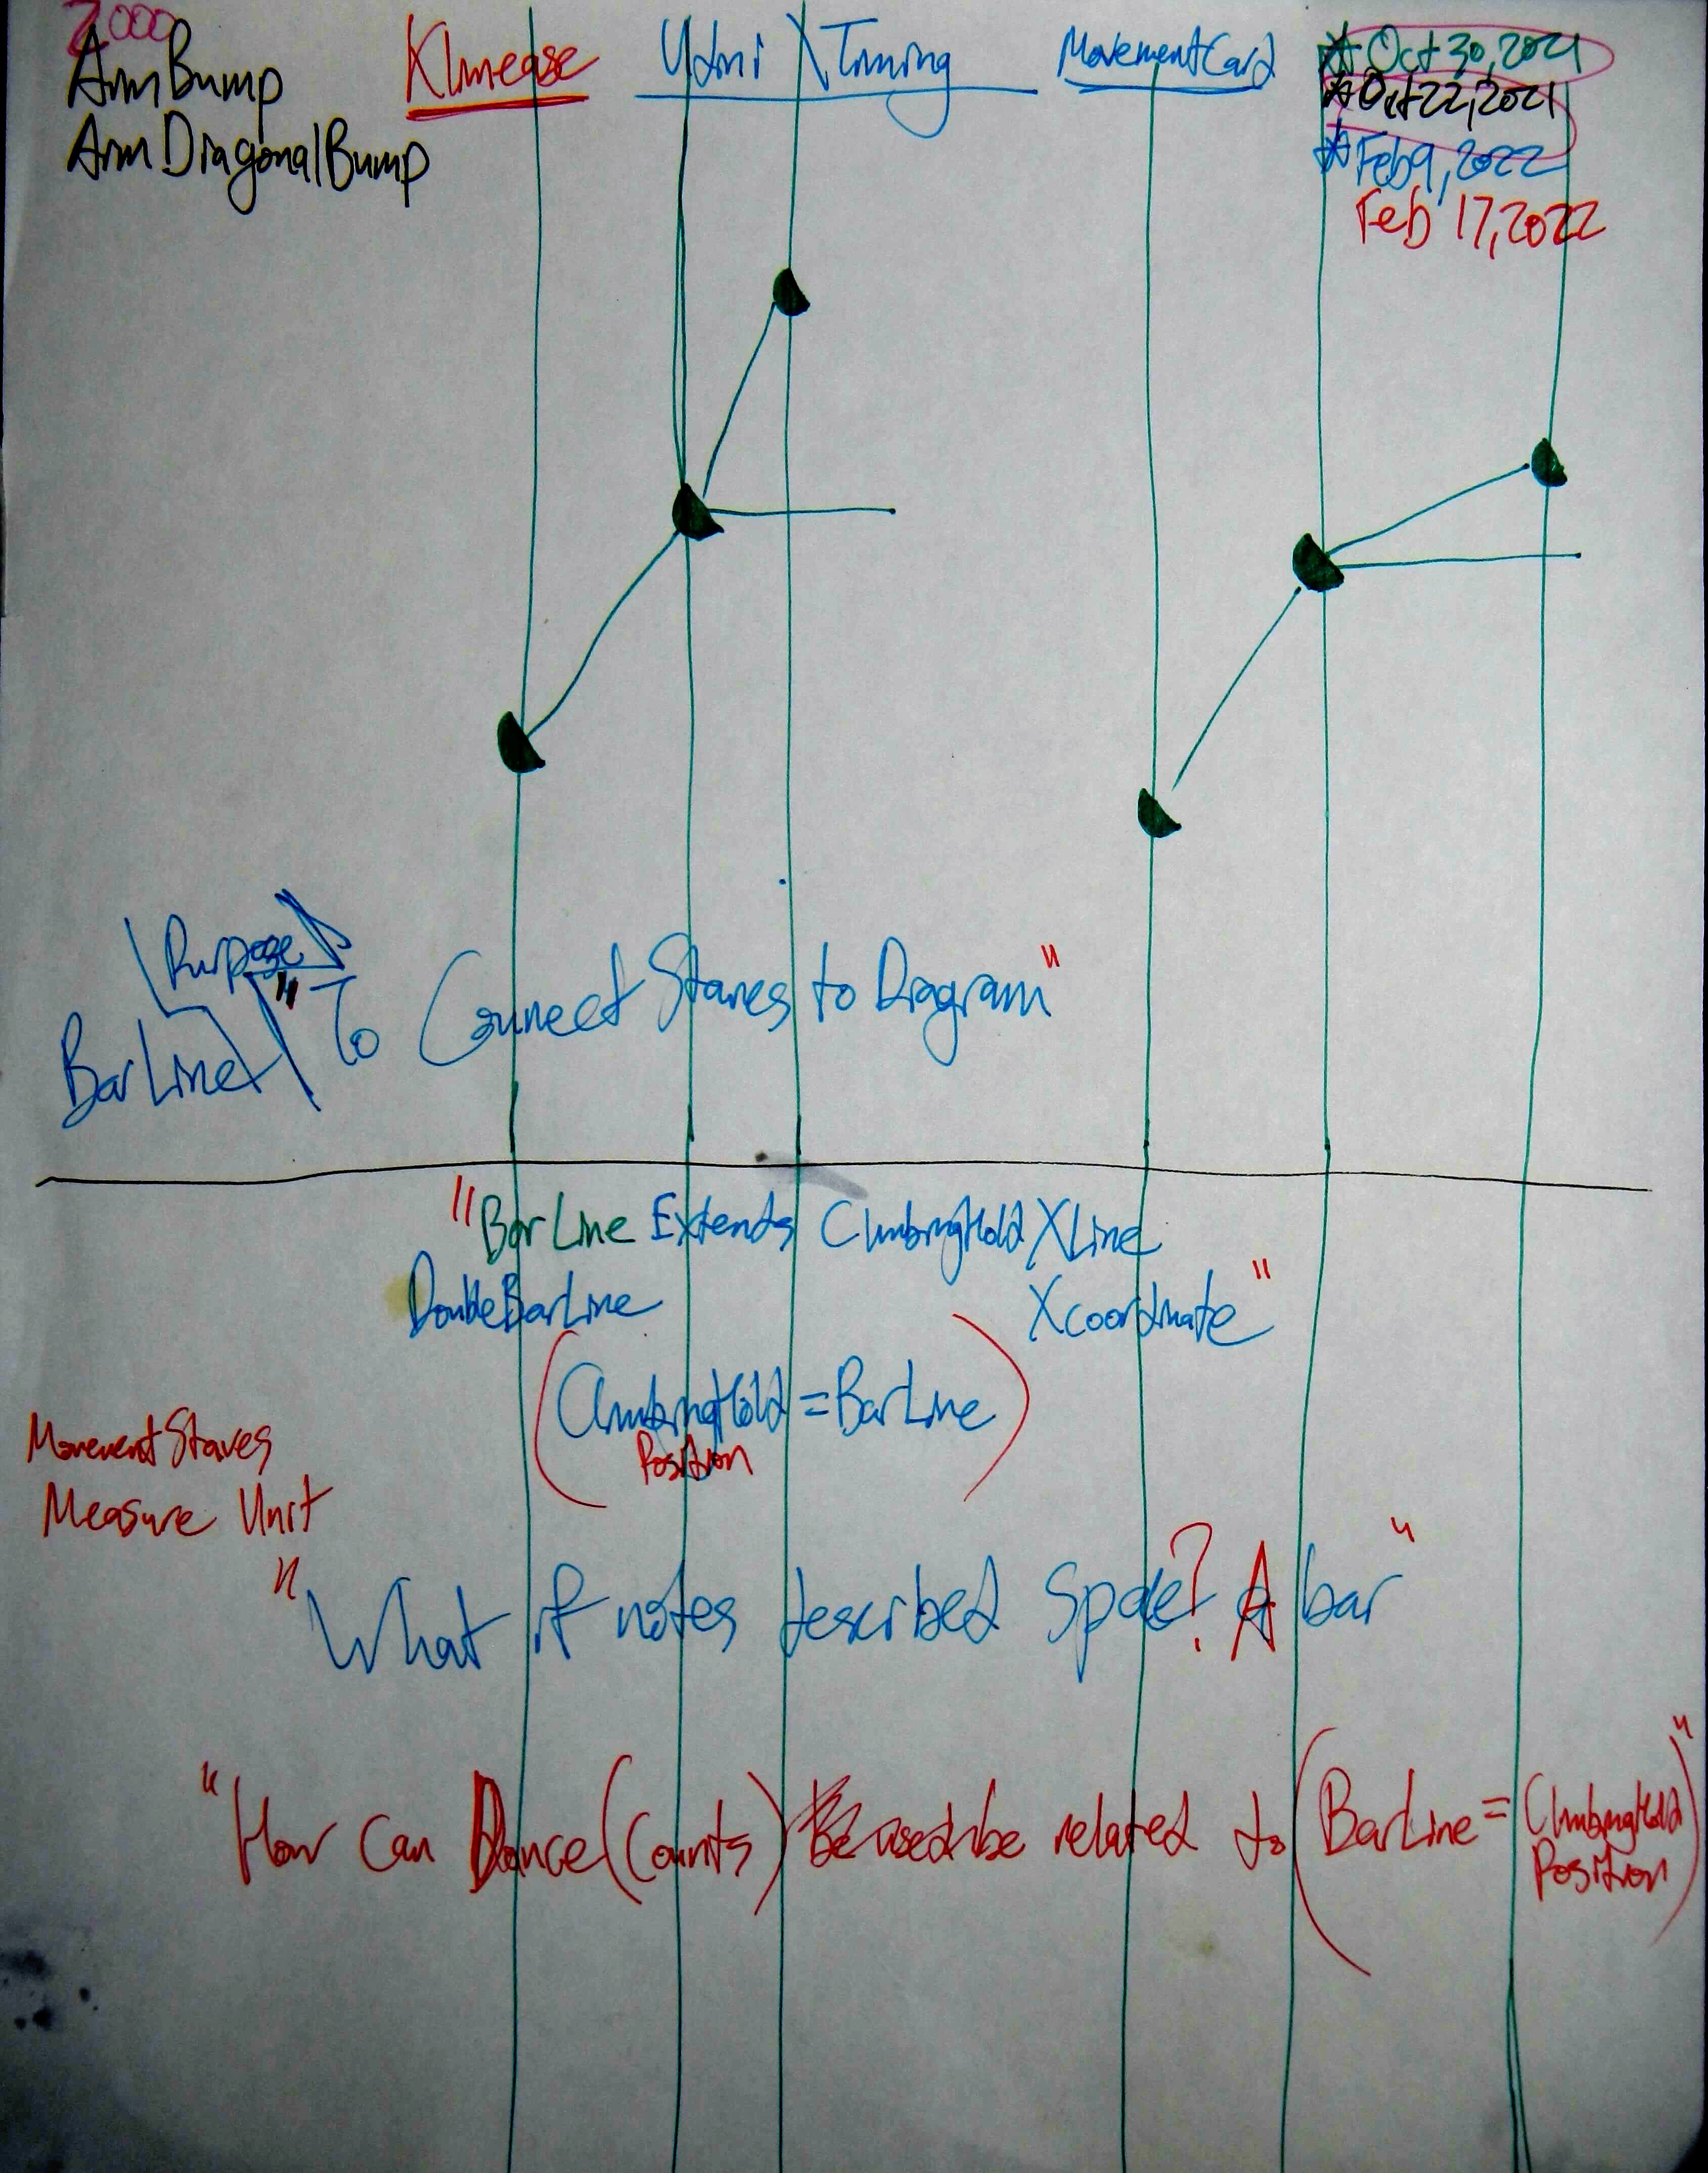 7,000
ArmBump
ArmDiagonalBump
Klmease
XTiming
MovementCard
Oct 30, 2021
Oct 22, 2021
Feb 9, 2022
Feb 17, 2022
Purpose
BarLine
"To Connect Staves to Diagram"
"BarLine Extends ClimbingHold XLine
DoubleBarLine
Xcoordinate"
(ClimbingHold = BarLine)
Position
Movement Staves
Measure Unit
"What if notes described Space? A bar"
"How Can Dance (Counts) be related to (BarLine = ClimbingHold Position)"